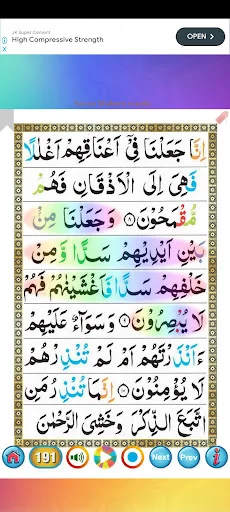 JK Super Cement
High Compressive Strength
OPEN
إِنَّا جَعَلْنَا فِيْٓ اَعْنَاقِهِمْ اَغْلٰلًا
فَهِىَ اِلَى الْاَذْقَانِ فَهُمْ
مُّقْمَحُوْنَ ۸ وَجَعَلْنَا مِنْۢ
بَيْنِ اَيْدِيْهِمْ سَدًّا وَّمِنْ
خَلْفِهِمْ سَدًّا فَاَغْشَيْنٰهُمْ فَهُمْ
لَا يُبْصِرُوْنَ ۹ وَسَوَآءٌ عَلَيْهِمْ
ءَاَنْذَرْتَهُمْ اَمْ لَمْ تُنْذِرْهُمْ
لَا يُؤْمِنُوْنَ ۱۰ اِنَّمَا تُنْذِرُ مَنِ
اتَّبَعَ الذِّكْرَ وَخَشِىَ الرَّحْمٰنَ
191
Next
Prev